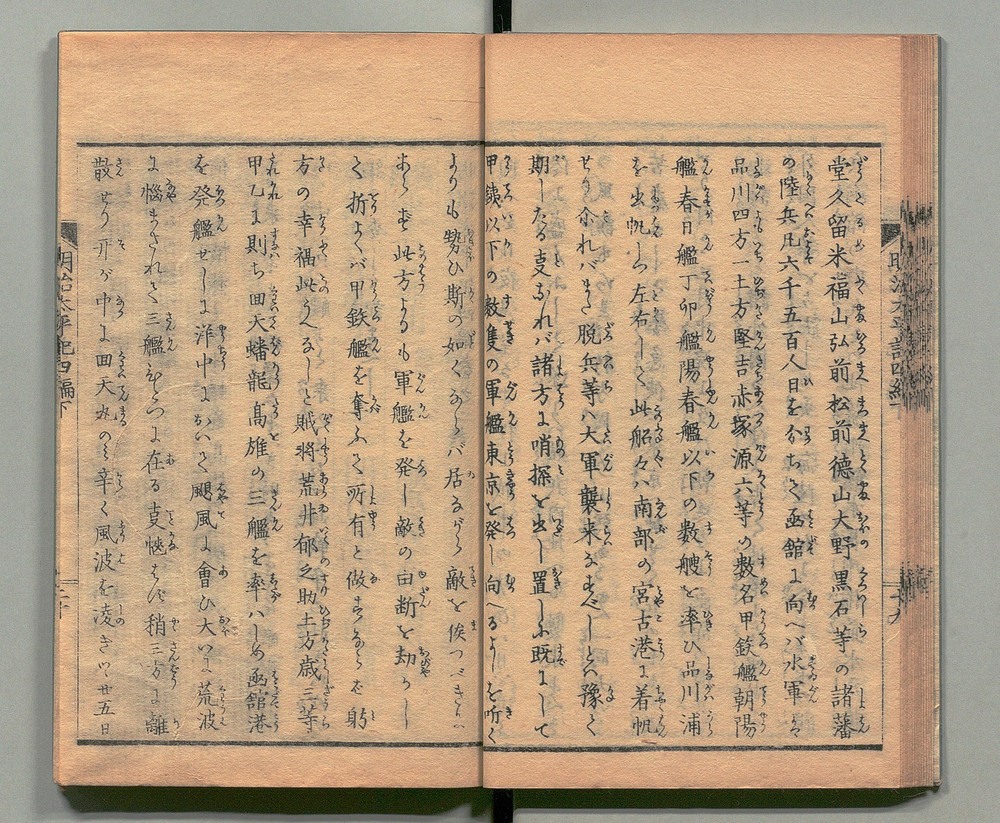 堂久留米福山弘前松前徳山大野黒石等の諸藩
の陸兵凡六千五百人日を分ちて函館に向へバ水軍ハ
品川四方一土方堅吉赤塚源六等の数名甲鉄艦朝陽
艦春日艦丁卯艦陽春艦以下の数艘を率ひ品川浦
を出帆しつ左右して此船々ハ南部の宮古港に着帆
せり尓れバまた脱兵等ハ大軍襲来なすべしとハ豫て
期したる事なれバ諸方に哨探を出し置しに既にして
甲鉄以下の数隻の軍艦東京を発し向へるよしを聞く
よりも勢ひ斯の如くならバ居ながら敵を俟つべきに
あらず此方よりも軍艦を発し敵の由断を劫かし
て折よくバ甲鉄艦を奪ふて所有と做すならバ躬
方の幸福此うへなしと賊将荒井郁之助土方歳三等
甲乙に則ち回天蟠龍髙雄の三艦を率ハしめ函舘港
を発艦せしに洋中において颶風に會ひ大いに荒波
に悩まされて三艦ひとつに在る事憾はず稍三方に離
散せり开が中に回天丸のミ辛く風波を凌ぎつゝ廿五日
明治太平記四編下